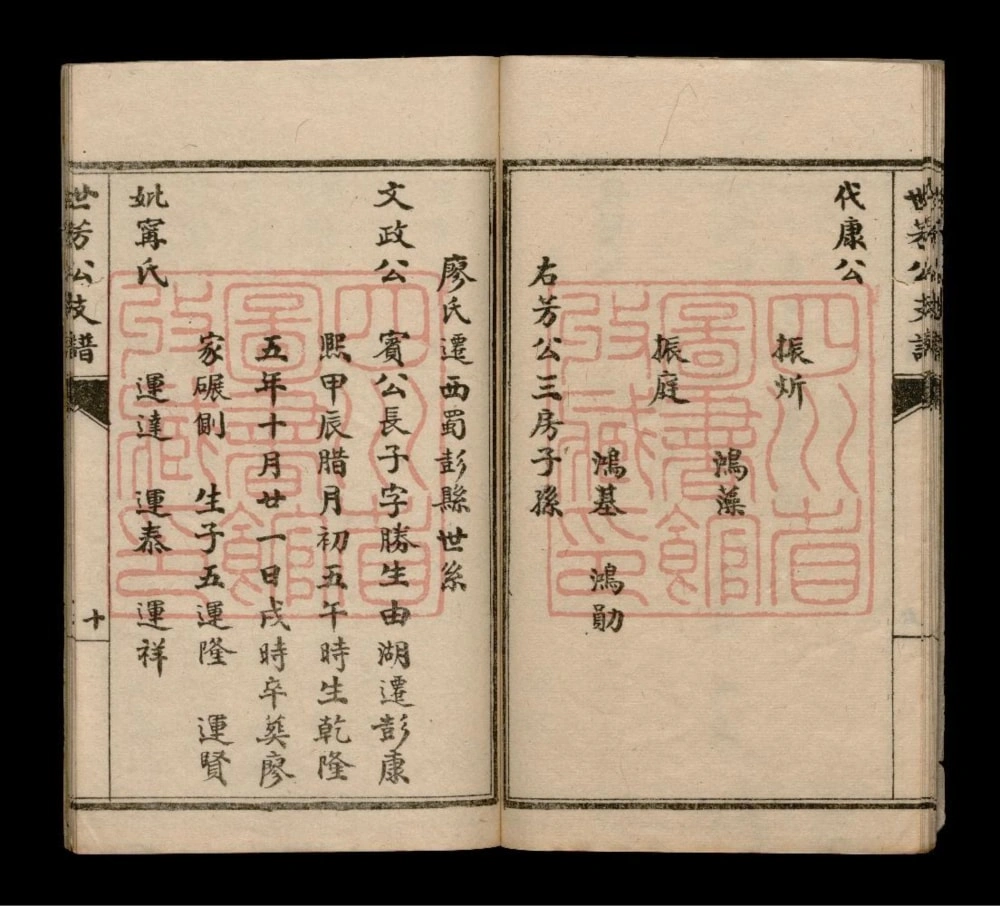 世芳公支譜
代康公
振炘
鴻藻
振庭
鴻基 鴻勛
右芳公三房子孫
廖氏遷西蜀彭縣世系
文政公 賓公長子字勝生由湖遷彭康
熙甲辰腊月初五午時生乾隆
五年十月廿一日戌時卒葬廖
家碾側 生子五運隆 運賢
妣甯氏 運達 運泰 運祥
世芳公支譜
十
四川省圖書館收藏印
四川省圖書館收藏印